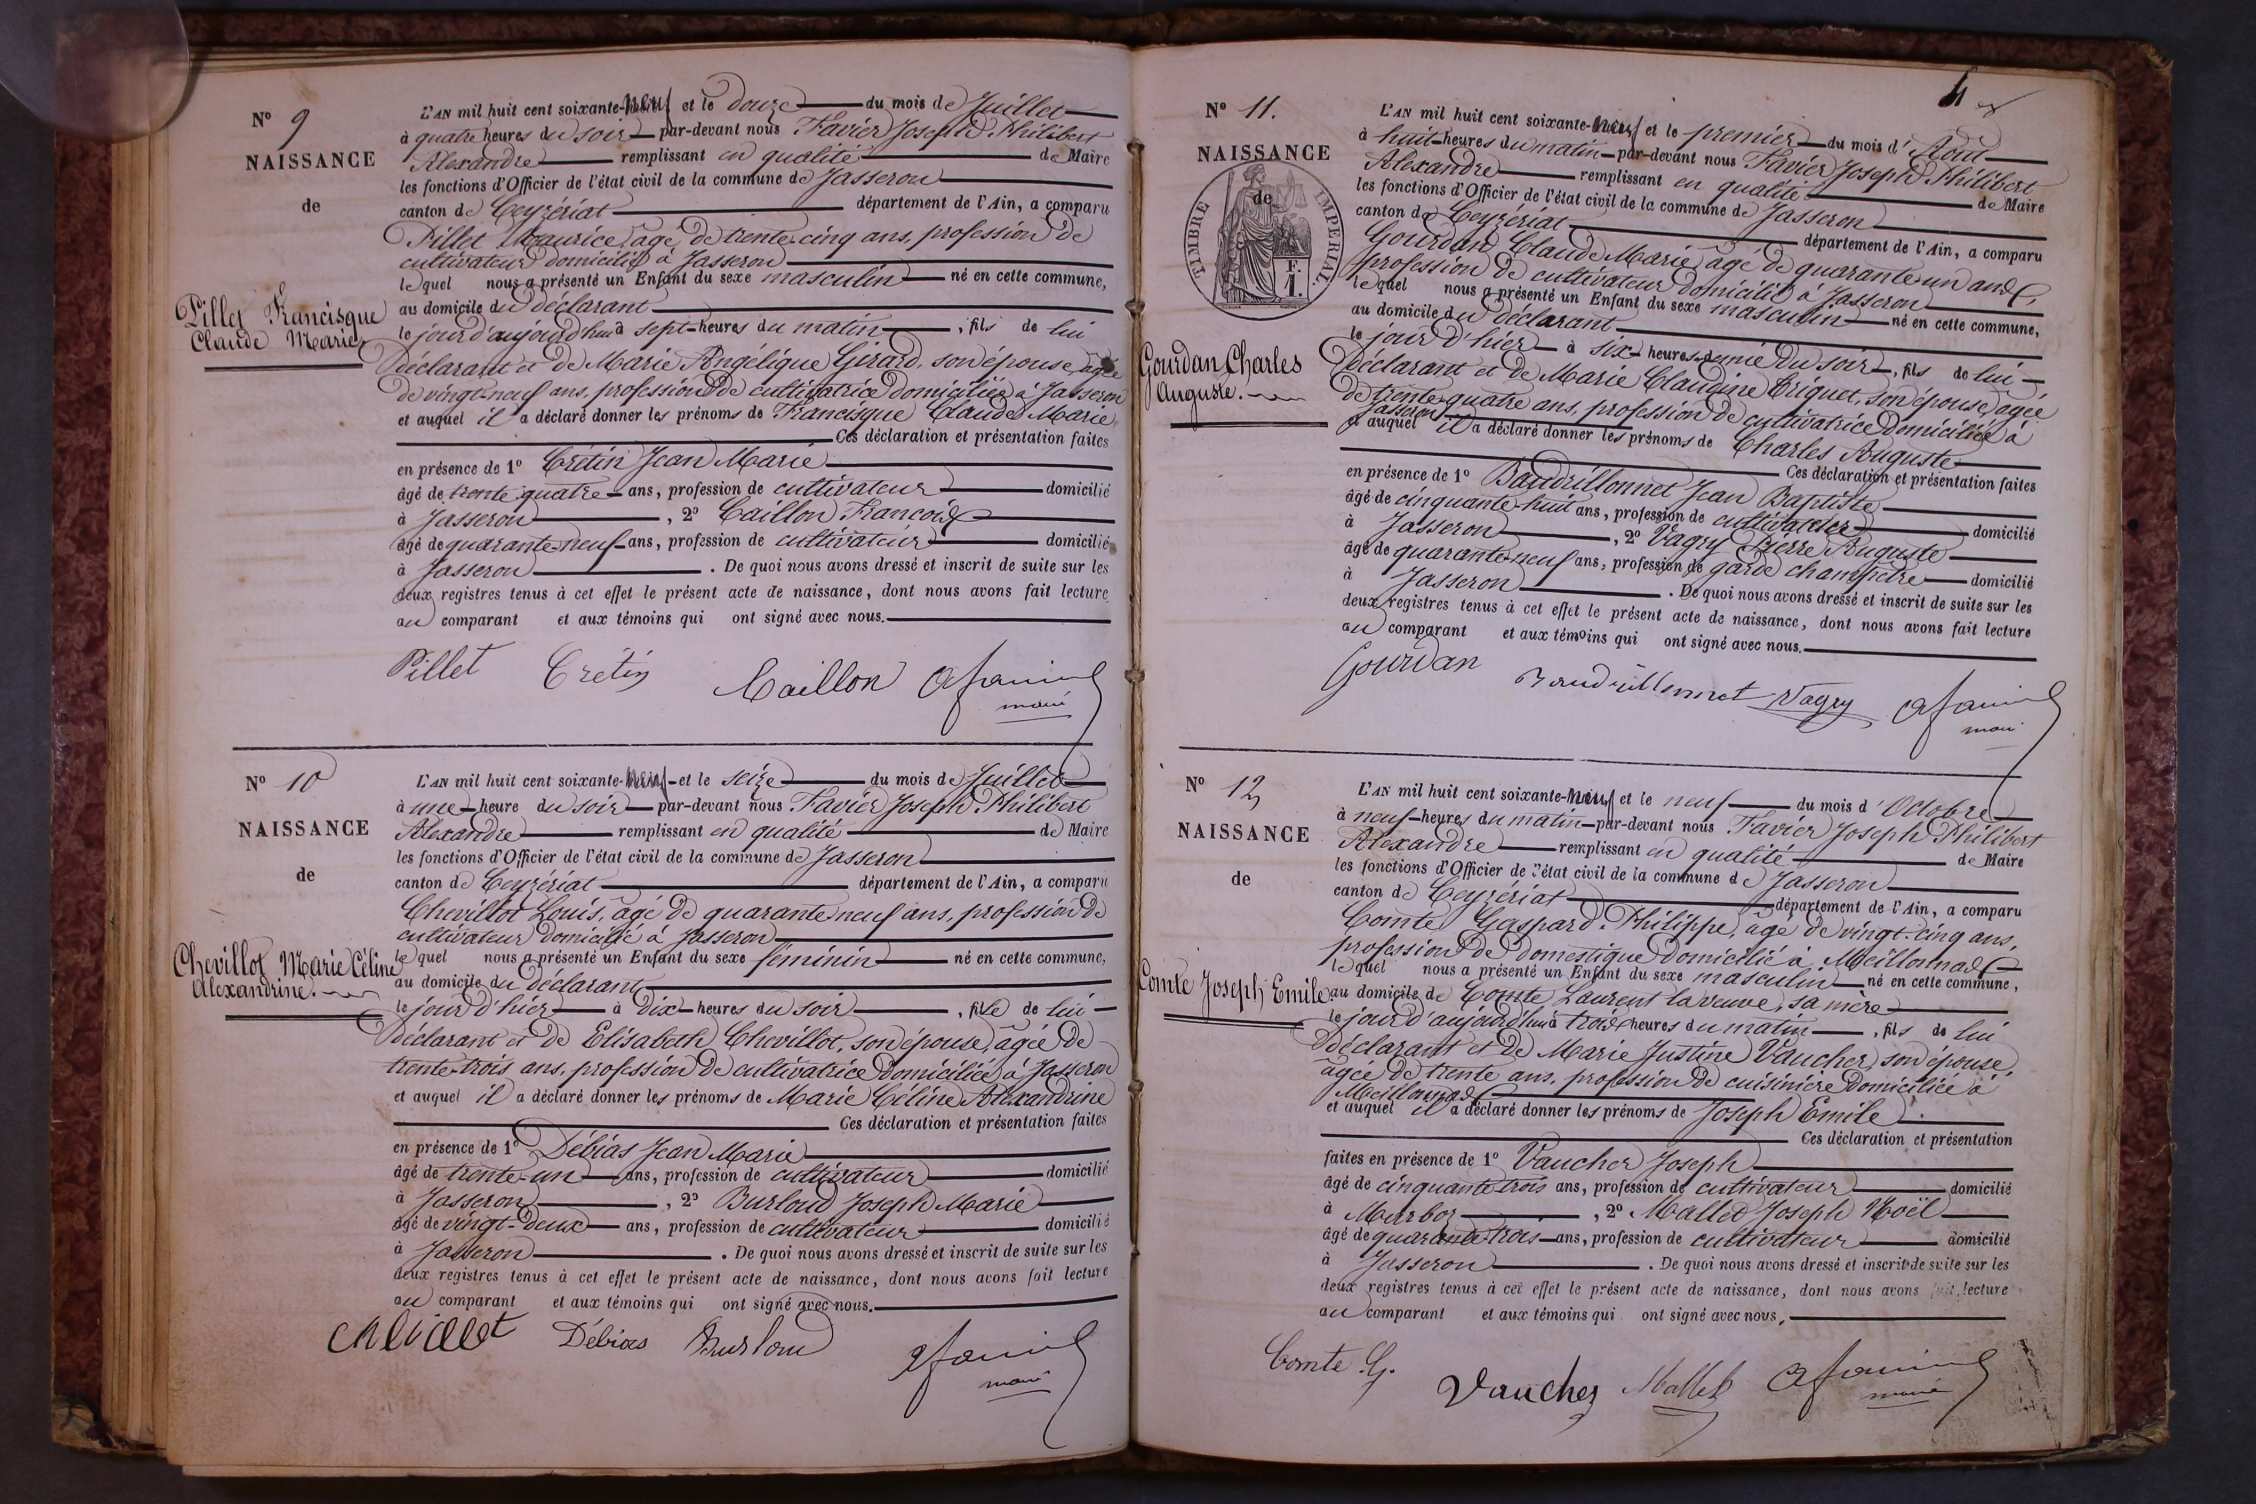 N° 9
NAISSANCE
de
Pillet Francisque
Claude Marie
L'AN mil huit cent soixante-neuf et le douze du mois de Juillet
à quatre heures du soir par-devant nous Favier Joseph Philibert
Alexandre remplissant en qualité de Maire
les fonctions d'Officier de l'état civil de la commune de Jasseron
canton de Ceyzériat département de l'Ain, a comparu
Pillet Maurice, agé de trente-cinq ans, profession de
cultivateur domicilié à Jasseron
lequel nous a présenté un Enfant du sexe masculin né en cette commune,
au domicile du déclarant
le jour d'aujourd'hui à sept heures du matin, fils de lui
déclarant et de Marie Angélique Girard, son épouse, agée
de vingt-neuf ans, profession de cultivatrice domiciliée à Jasseron
et auquel il a déclaré donner les prénoms de Francisque Claude Marie
Ces déclaration et présentation faites
en présence de 1° Crétin Jean Marie
âgé de trente quatre ans, profession de cultivateur domicilié
à Jasseron, 2° Caillon François
âgé de quarante-neuf ans, profession de cultivateur domicilié
à Jasseron. De quoi nous avons dressé et inscrit de suite sur les
deux registres tenus à cet effet le présent acte de naissance, dont nous avons fait lecture
au comparant et aux témoins qui ont signé avec nous.
Pillet Crétin Caillon afavier
maire
N° 10
NAISSANCE
de
Chevillot Marie Céline
Alexandrine.
L'AN mil huit cent soixante-neuf et le seize du mois de Juillet
à une heure du soir par-devant nous Favier Joseph Philibert
Alexandre remplissant en qualité de Maire
les fonctions d'Officier de l'état civil de la commune de Jasseron
canton de Ceyzériat département de l'Ain, a comparu
Chevillot Louis, agé de quarante neuf ans, profession de
cultivateur domicilié à Jasseron
lequel nous a présenté un Enfant du sexe féminin né en cette commune,
au domicile du déclarant
le jour d'hier à dix heures du soir, fille de lui
déclarant et de Elisabeth Chevillot, son épouse, agée de
trente-trois ans, profession de cultivatrice domiciliée à Jasseron
et auquel il a déclaré donner les prénoms de Marie Céline Alexandrine
Ces déclaration et présentation faites
en présence de 1° Débias Jean Marie
âgé de trente-un ans, profession de cultivateur domicilié
à Jasseron, 2° Burloud Joseph Marie
âgé de vingt-deux ans, profession de cultivateur domicilié
à Jasseron. De quoi nous avons dressé et inscrit de suite sur les
deux registres tenus à cet effet le présent acte de naissance, dont nous avons fait lecture
au comparant et aux témoins qui ont signé avec nous.
Débias Burloud afavier
maire
4
N° 11.
NAISSANCE
de
TIMBRE IMPERIAL.
F.
1.
Gourdan Charles
Auguste.
L'AN mil huit cent soixante-neuf et le premier du mois d'Août
à huit heures du matin par-devant nous Favier Joseph Philibert
Alexandre remplissant en qualité de Maire
les fonctions d'Officier de l'état civil de la commune de Jasseron
canton de Ceyzériat département de l'Ain, a comparu
Gourdan Claude Marie, agé de quarante-un ans,
profession de cultivateur domicilié à Jasseron
lequel nous a présenté un Enfant du sexe masculin né en cette commune,
au domicile du déclarant
le jour d'hier à six heures demie du soir, fils de lui
déclarant et de Marie Claudine Criquet, son épouse, agée
de trente-quatre ans, profession de cultivatrice domiciliée à
Jasseron
et auquel il a déclaré donner les prénoms de Charles Auguste
Ces déclaration et présentation faites
en présence de 1° Baudrillonnet Jean Baptiste
âgé de cinquante-huit ans, profession de cultivateur domicilié
à Jasseron, 2° Vagry Pierre Auguste
âgé de quarante-neuf ans, profession de garde champêtre domicilié
à Jasseron. De quoi nous avons dressé et inscrit de suite sur les
deux registres tenus à cet effet le présent acte de naissance, dont nous avons fait lecture
au comparant et aux témoins qui ont signé avec nous.
Gourdan Baudrillonnet Vagry afavier
maire
N° 12
NAISSANCE
de
Comte Joseph Emile.
L'AN mil huit cent soixante-neuf et le neuf du mois d'Octobre
à neuf heures du matin par-devant nous Favier Joseph Philibert
Alexandre remplissant en qualité de Maire
les fonctions d'Officier de l'état civil de la commune de Jasseron
canton de Ceyzériat département de l'Ain, a comparu
Comte Gaspard Philippe, agé de vingt-cinq ans,
profession de domestique domicilié à Meillonnas
lequel nous a présenté un Enfant du sexe masculin né en cette commune,
au domicile de Comte Laurent la veuve, sa mère
le jour d'aujourd'hui à trois heures du matin, fils de lui
déclarant et de Marie Justine Vaucher, son épouse,
agée de trente ans, profession de cuisinière domiciliée à
Meillonnas
et auquel il a déclaré donner les prénoms de Joseph Emile.
Ces déclaration et présentation
faites en présence de 1° Vaucher Joseph
âgé de cinquante trois ans, profession de cultivateur domicilié
à Marboz, 2° Mallet Joseph Noël
âgé de quarante-trois ans, profession de cultivateur domicilié
à Jasseron. De quoi nous avons dressé et inscrit de suite sur les
deux registres tenus à cet effet le présent acte de naissance, dont nous avons fait lecture
au comparant et aux témoins qui ont signé avec nous.
Comte G. Vaucher Mallet afavier
maire